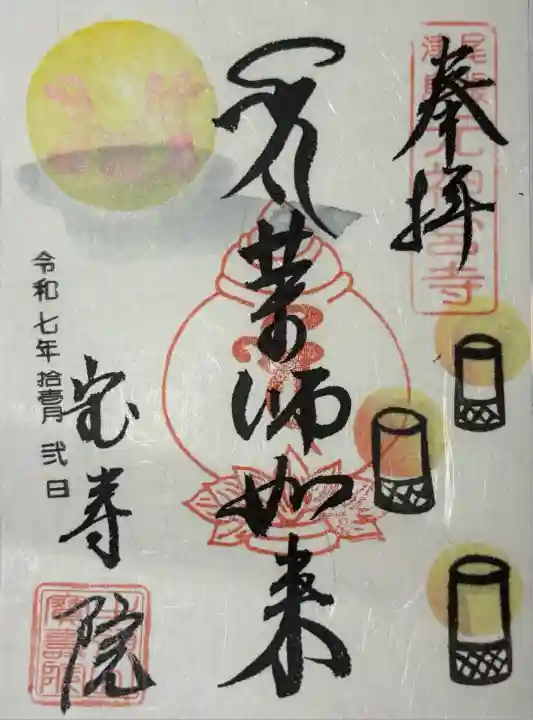 奉拝
薬師如来
令和七年拾壹月弐日
宝寿院